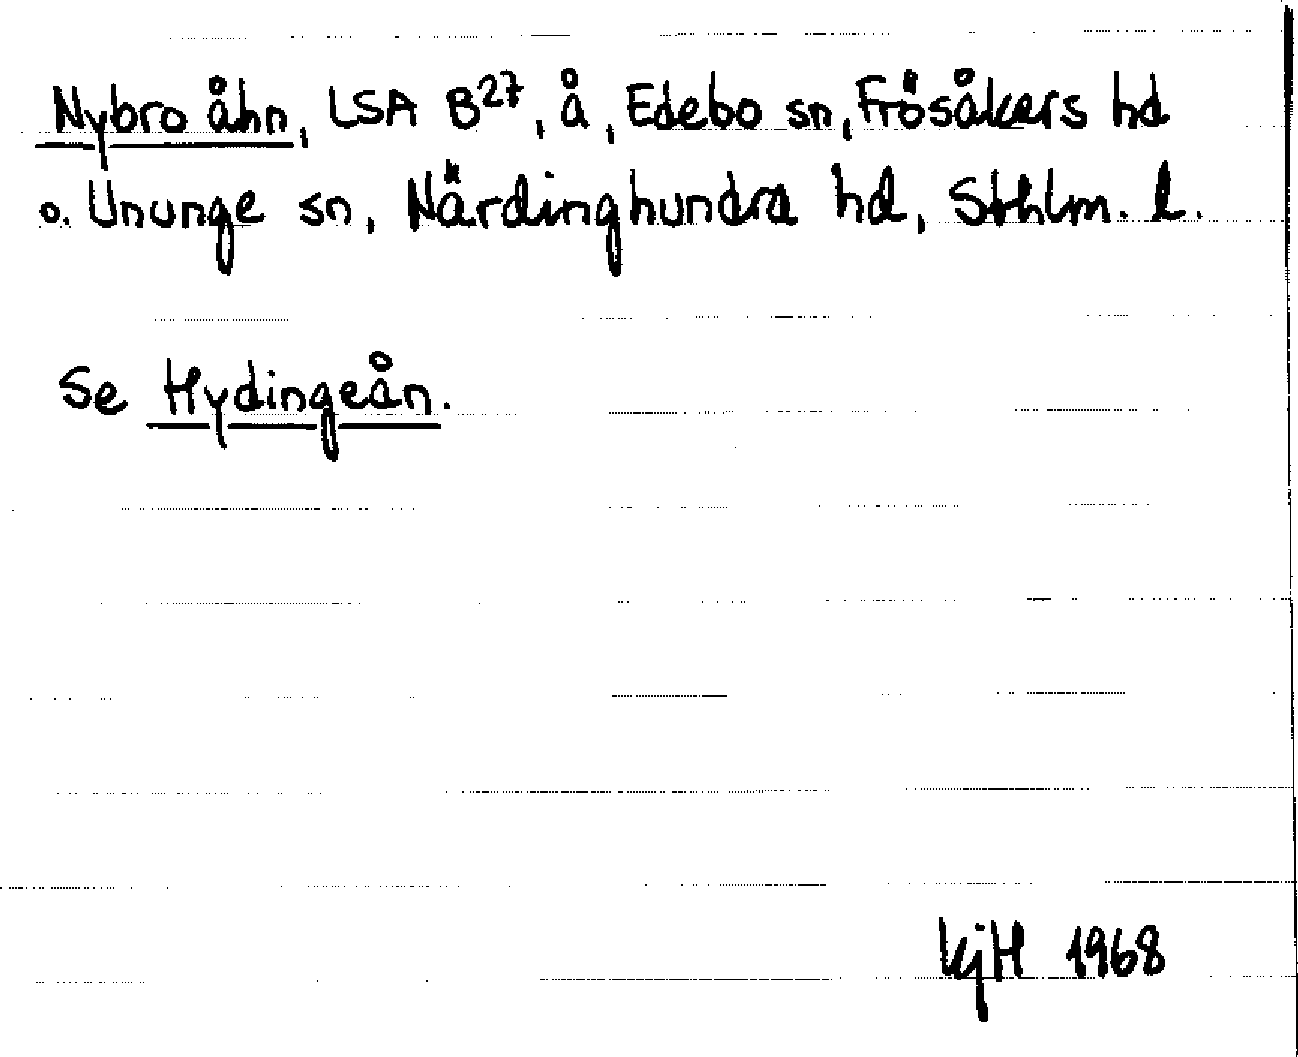 Nybro åhn, LSA B27, å, Edebo sn, Frösåkers hd
o. Ununge sn, Närdinghundra hd, Sthlm. l.
Se Hydingeån.
KjH 1968